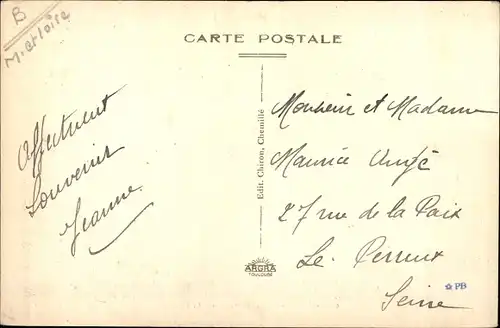 B
M. et loire
CARTE POSTALE
Affectueux
Souvenir
Jeanne
Edit. Chiron, Chemillé
Monsieur et Madame
Maurice
27 rue de la Paix
Le Perreux
Seine
ARGRA
TOULOUSE
PB